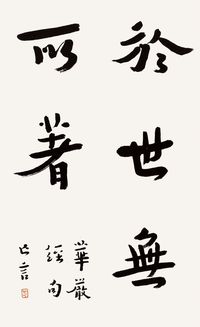 於世無
所著
華嚴
經句